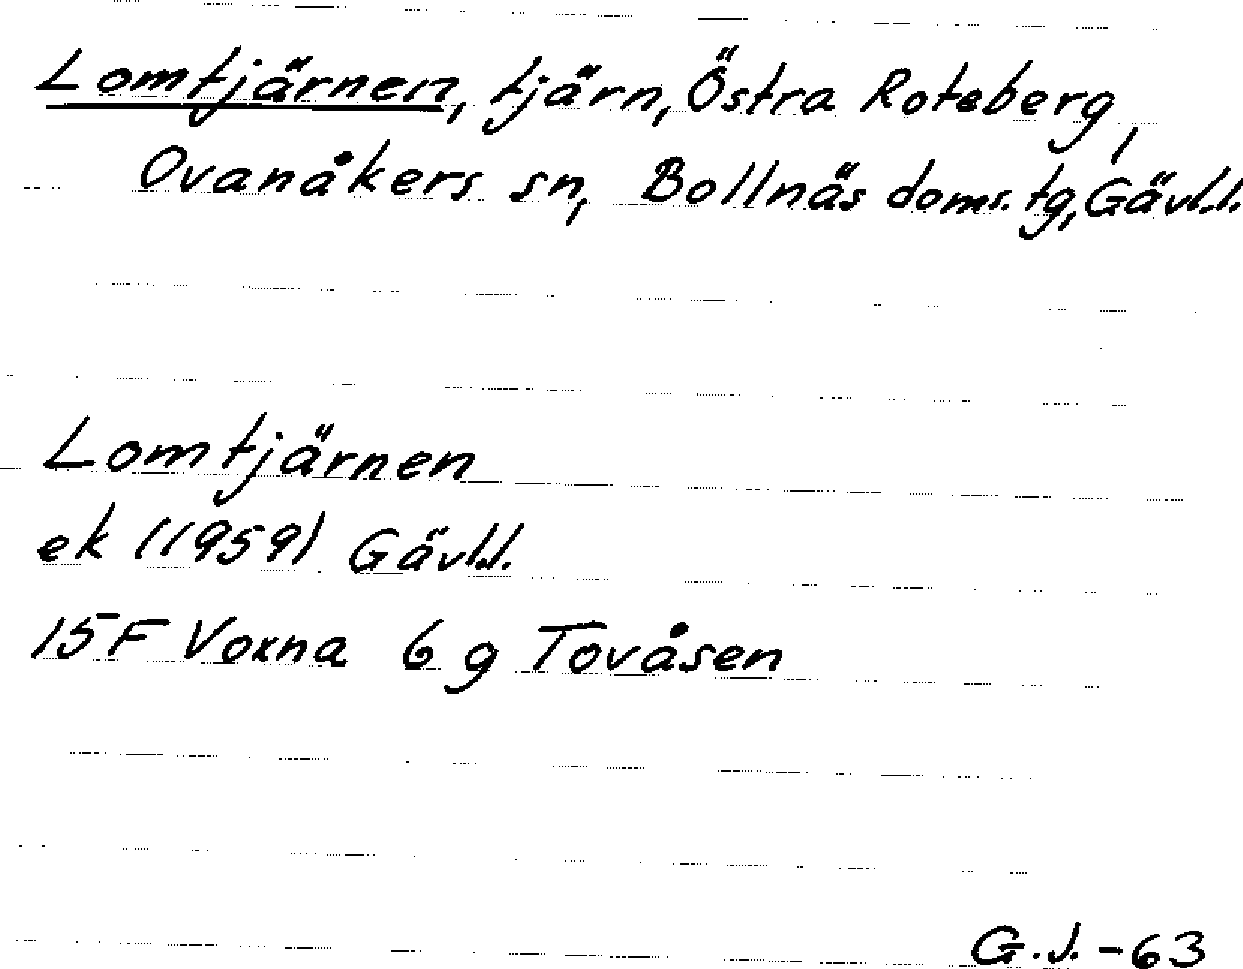 Lomtjärnen, tjärn, Östra Roteberg,
Ovanåkers sn, Bollnäs doms. tg, Gävl.l.
Lomtjärnen
ek (1959) Gävl.l.
15F Voxna 6 g Tovåsen
G.J. -63